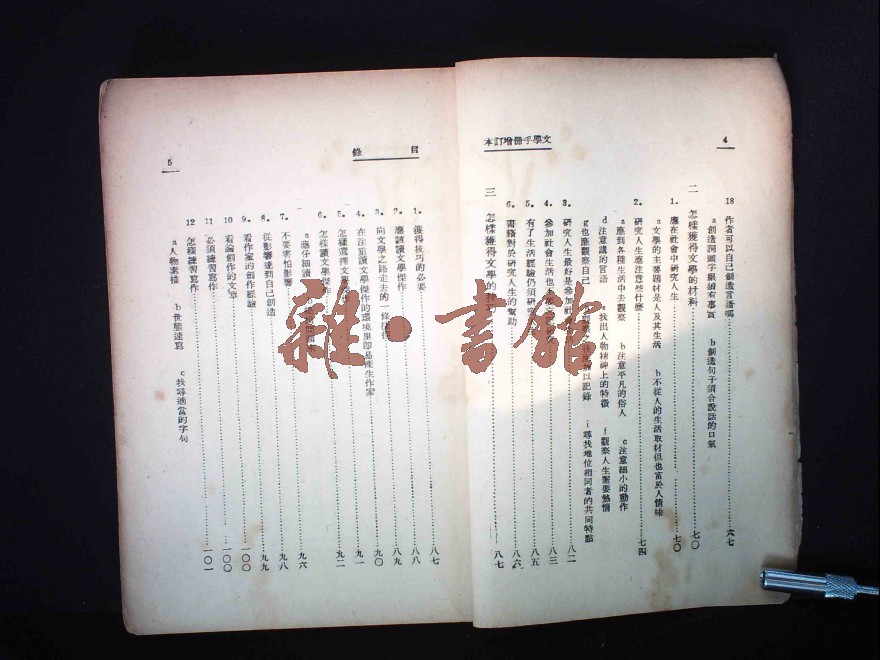 4
文學手冊增訂本
18 作者可以自己創造言語嗎……六七
a 創造詞頭字眼須有專實 b 創造句子須合說話的口氣
二 怎樣獲得文學的材料……七〇
1. 應在社會中研究人生……七〇
a 文學的主要題材是人及其生活 b 不從人的生活取材但也富於人情味
2. 研究人生應注意些什麼……七四
a 應到各種生活中去觀察 b 注意平凡的俗人 c 注意細小的動作
d 注意講的言語 e 找出人物精神上的特徵 f 觀察人生需要熱情
g 也應觀察自己 以記錄 i 尋找地位相同者的共同特點
3. 研究人生最好是參加社……八二
4. 參加社會生活也……八三
5. 有了生活經驗仍須研究……八五
6. 書籍對於研究人生的幫助……八六
三 怎樣獲得文學的技巧……八七
目錄
5
1. 獲得技巧的必要……八七
2. 應該讀文學傑作……八八
3. 向文學之路走去的一條捷徑……八九
4. 在注重讀文學傑作的環境里卽易產生作家……九〇
5. 怎樣選擇文學傑作……九一
6. 怎樣讀文學傑作……九二
a 應仔細讀
7. 不要害怕影響……九六
8. 從影響達到自己創造……九八
9. 看作家的創作經驗……九九
10 看論創作的文章……一〇〇
11 必須練習寫作……一〇〇
12 怎樣練習寫作……一〇一
a 人物素描 b 世態速寫 c 找尋適當的字句
雜·書館